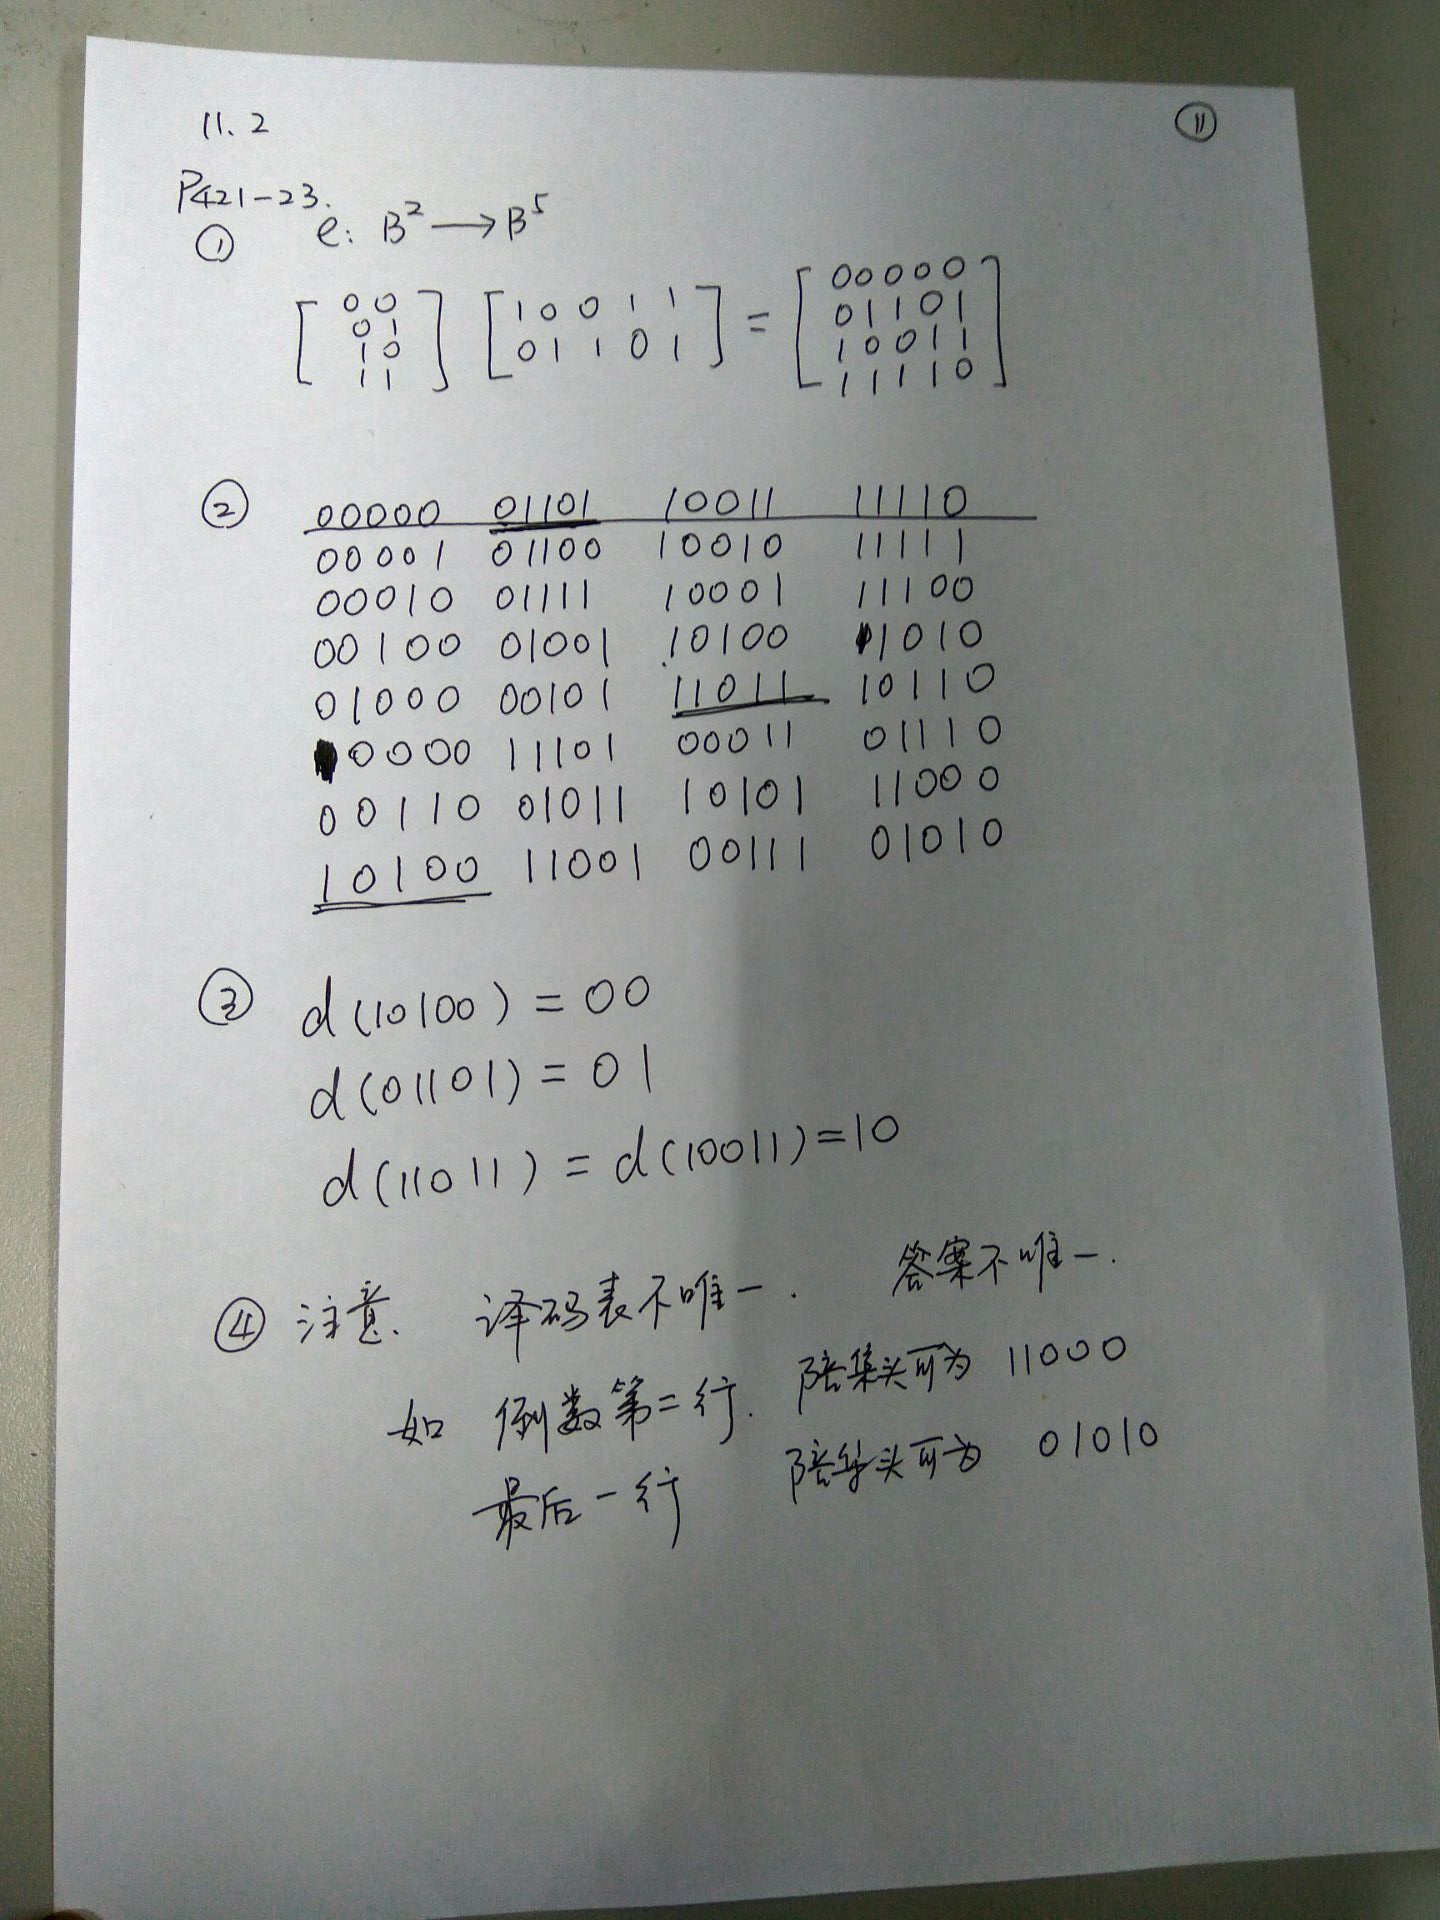 11、2 ⑪
P421-23.
① e: B² ⟶ B⁵
[00 01 10 11] [10011 01101] = [00000 01101 10011 11110]
② 00000 01101 10011 11110
00001 01100 10010 11111
00010 01111 10001 11100
00100 01001 10100 11010
01000 00101 11011 10110
10000 11101 00011 01110
00110 01011 10101 11000
10100 11001 00111 01010
③ d(10100) = 00
d(01101) = 01
d(11011) = d(10011)=10
④ 注意、 译码表不唯一. 答案不唯一.
如 倒数第二行. 陪集头可为 11000
最后一行 陪集头可为 01010